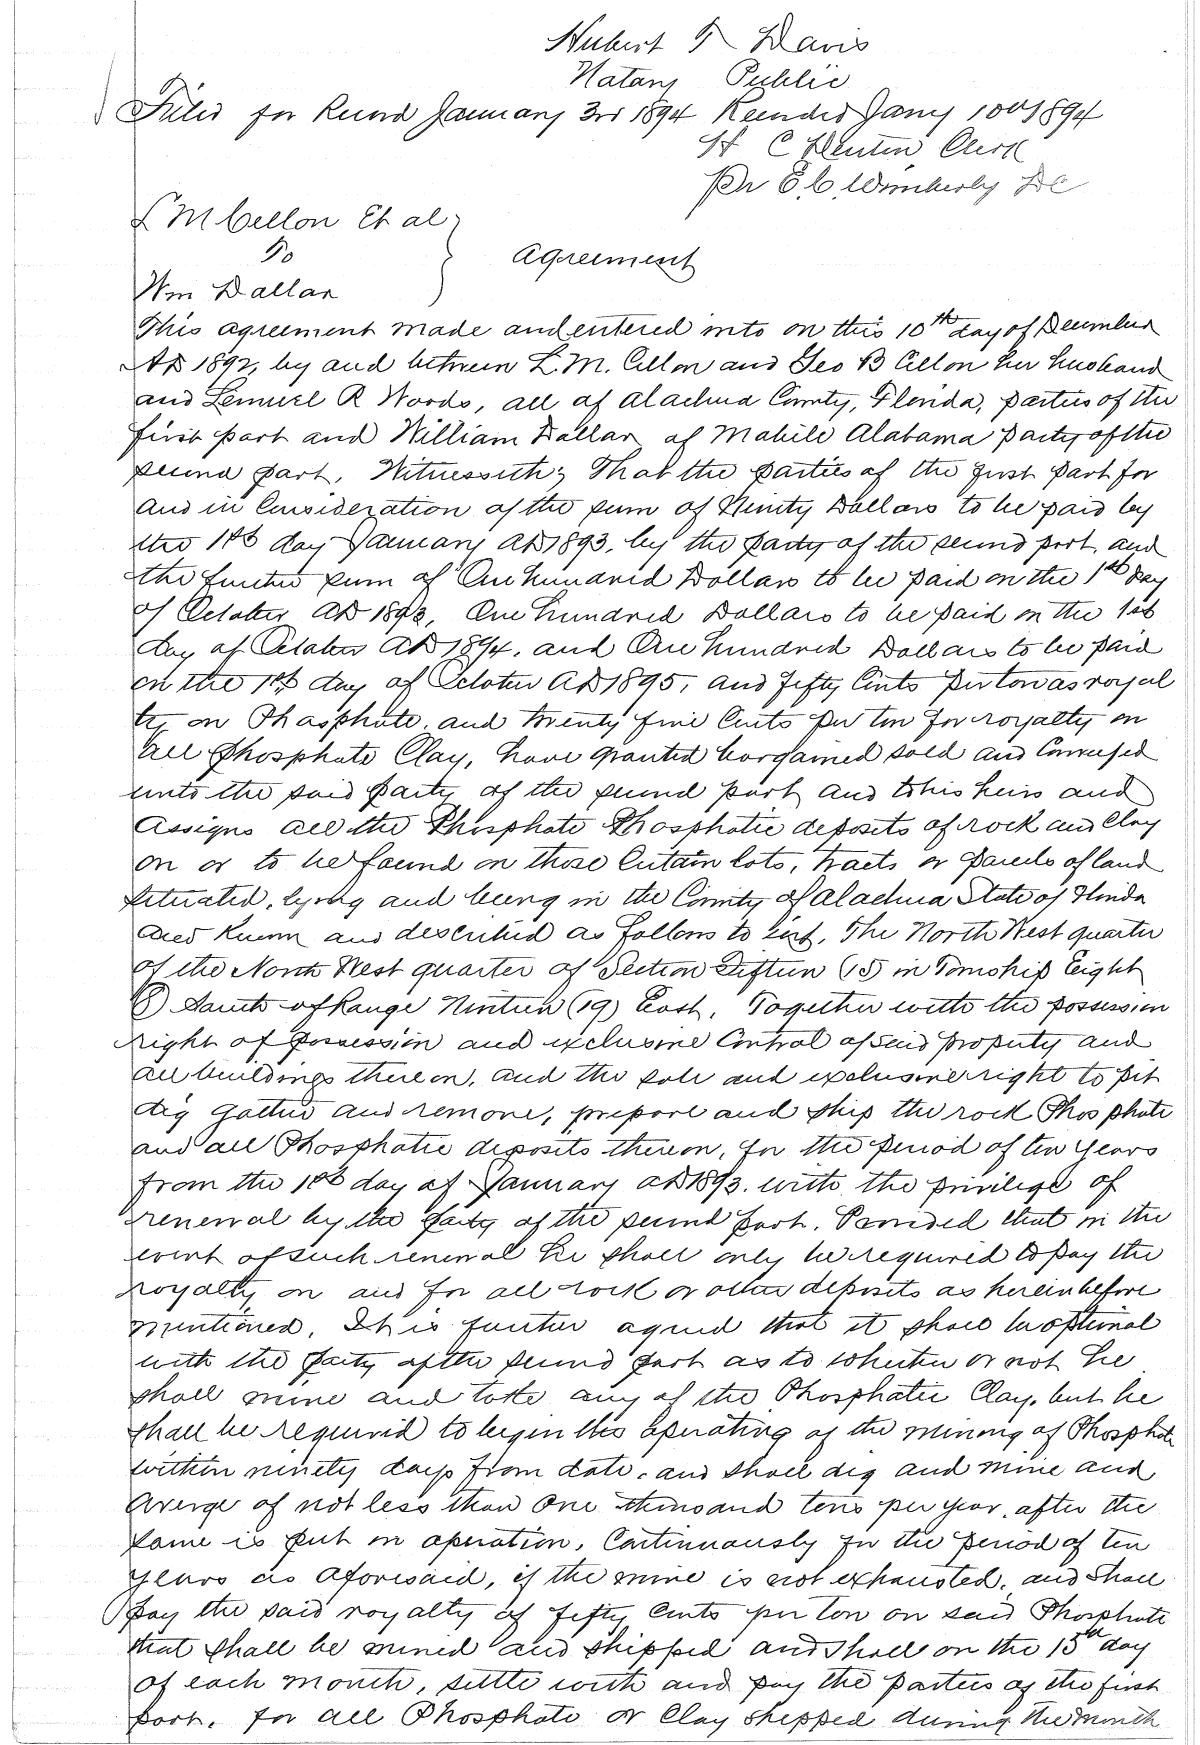 Hubert T Davis
Notary Public
Filed for Record January 3rd 1894 Recorded Jany 10th 1894
H C Denton Clerk
Pr E. C. Wimberly DC
L M Cellon Et al
To
Agreement
Wm Dallar
This agreement made and entered into on this 10th day of December
AD 1892, by and between L. M. Cellon and Geo B Cellon her husband
and Lemuel R Woods, all of Alachua County, Florida, parties of the
first part and William Dallar of Mobile Alabama party of the
second part, Witnesseth; That the parties of the first part for
and in Consideration of the sum of Ninety Dollars to be paid by
the 1st day January AD 1893, by the party of the second part, and
the further sum of One hundred Dollars to be paid on the 1st day
of October AD 1893, One hundred Dollars to be paid on the 1st
day of October AD 1894, and One hundred Dollars to be paid
on the 1st day of October AD 1895, and fifty Cents per ton as royal
ty on Phosphate, and twenty five Cents per ton for royalty on
all Phosphate Clay, have granted bargained sold and Conveyed
unto the said party of the second part and to his heirs and
Assigns all the Phosphate Phosphatic deposits of rock and Clay
on or to be found on those Certain lots, tracts or parcels of land
situated, lying and being in the County of Alachua State of Florida
and Known and described as follows to wit, The North West quarter
of the North West quarter of Section Fifteen (15) in Township Eight
(8) South of Range Ninteen (19) East, Together with the possession
right of possession and exclusive Control of said property and
all buildings thereon, and the sole and exclusive right to pit
dig gather and remove, prepare and ship the rock Phosphate
and all Phosphatic deposits thereon, for the period of ten years
from the 1st day of January AD 1893. with the privilege of
renewal by the party of the second part, Provided that in the
event of such renewal he shall only be required to pay the
royalty on and for all rock or other deposits as hereinbefore
mentioned, It is further agreed that it shall be optional
with the party of the second part as to whether or not he
shall mine and take any of the Phosphatic Clay, but he
shall be required to begin the operating of the mining of Phosphate
within ninety days from date, and shall dig and mine and
averge of not less than One thousand tons per year, after the
same is put in operation, Continuously for the period of ten
years as aforesaid, if the mine is not exhausted, and shall
pay the said royalty of fifty Cents per ton on said Phosphate
that shall be mined and shipped and shall on the 15th day
of each month, settle with and pay the parties of the first
part, for all Phosphate or Clay shipped during the month